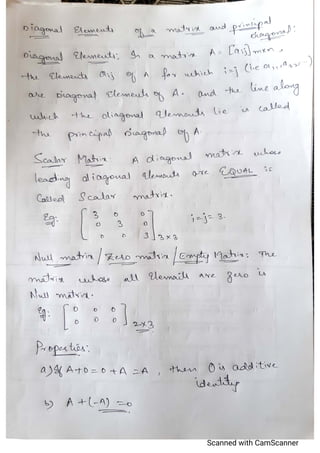 Diagonal Elements of a matrix and principal
diagonal:
Diagonal Elements: In a matrix A = [aij]mxn,
the Elements aij of A for which i=j (i.e a11, a22 ...)
are Diagonal Elements of A. and the line along
which the diagonal Elements lie is called
the principal Diagonal of A.
Scalar Matrix A diagonal matrix whose
leading diagonal Elements are EQUAL is
Called Scalar matrix.
Eg: [ 3 0 0
0 3 0 i=j= 3.
0 0 3 ] 3x3
Null matrix / Zero matrix / Empty Matrix: The
matrix whose all Elements are zero is
Null matrix.
Eg: [ 0 0 0
0 0 0 ] 2x3
Properties:
a) If A+0 = 0+A = A, then 0 is additive
identity
b) A +(-A) =0
Scanned with CamScanner